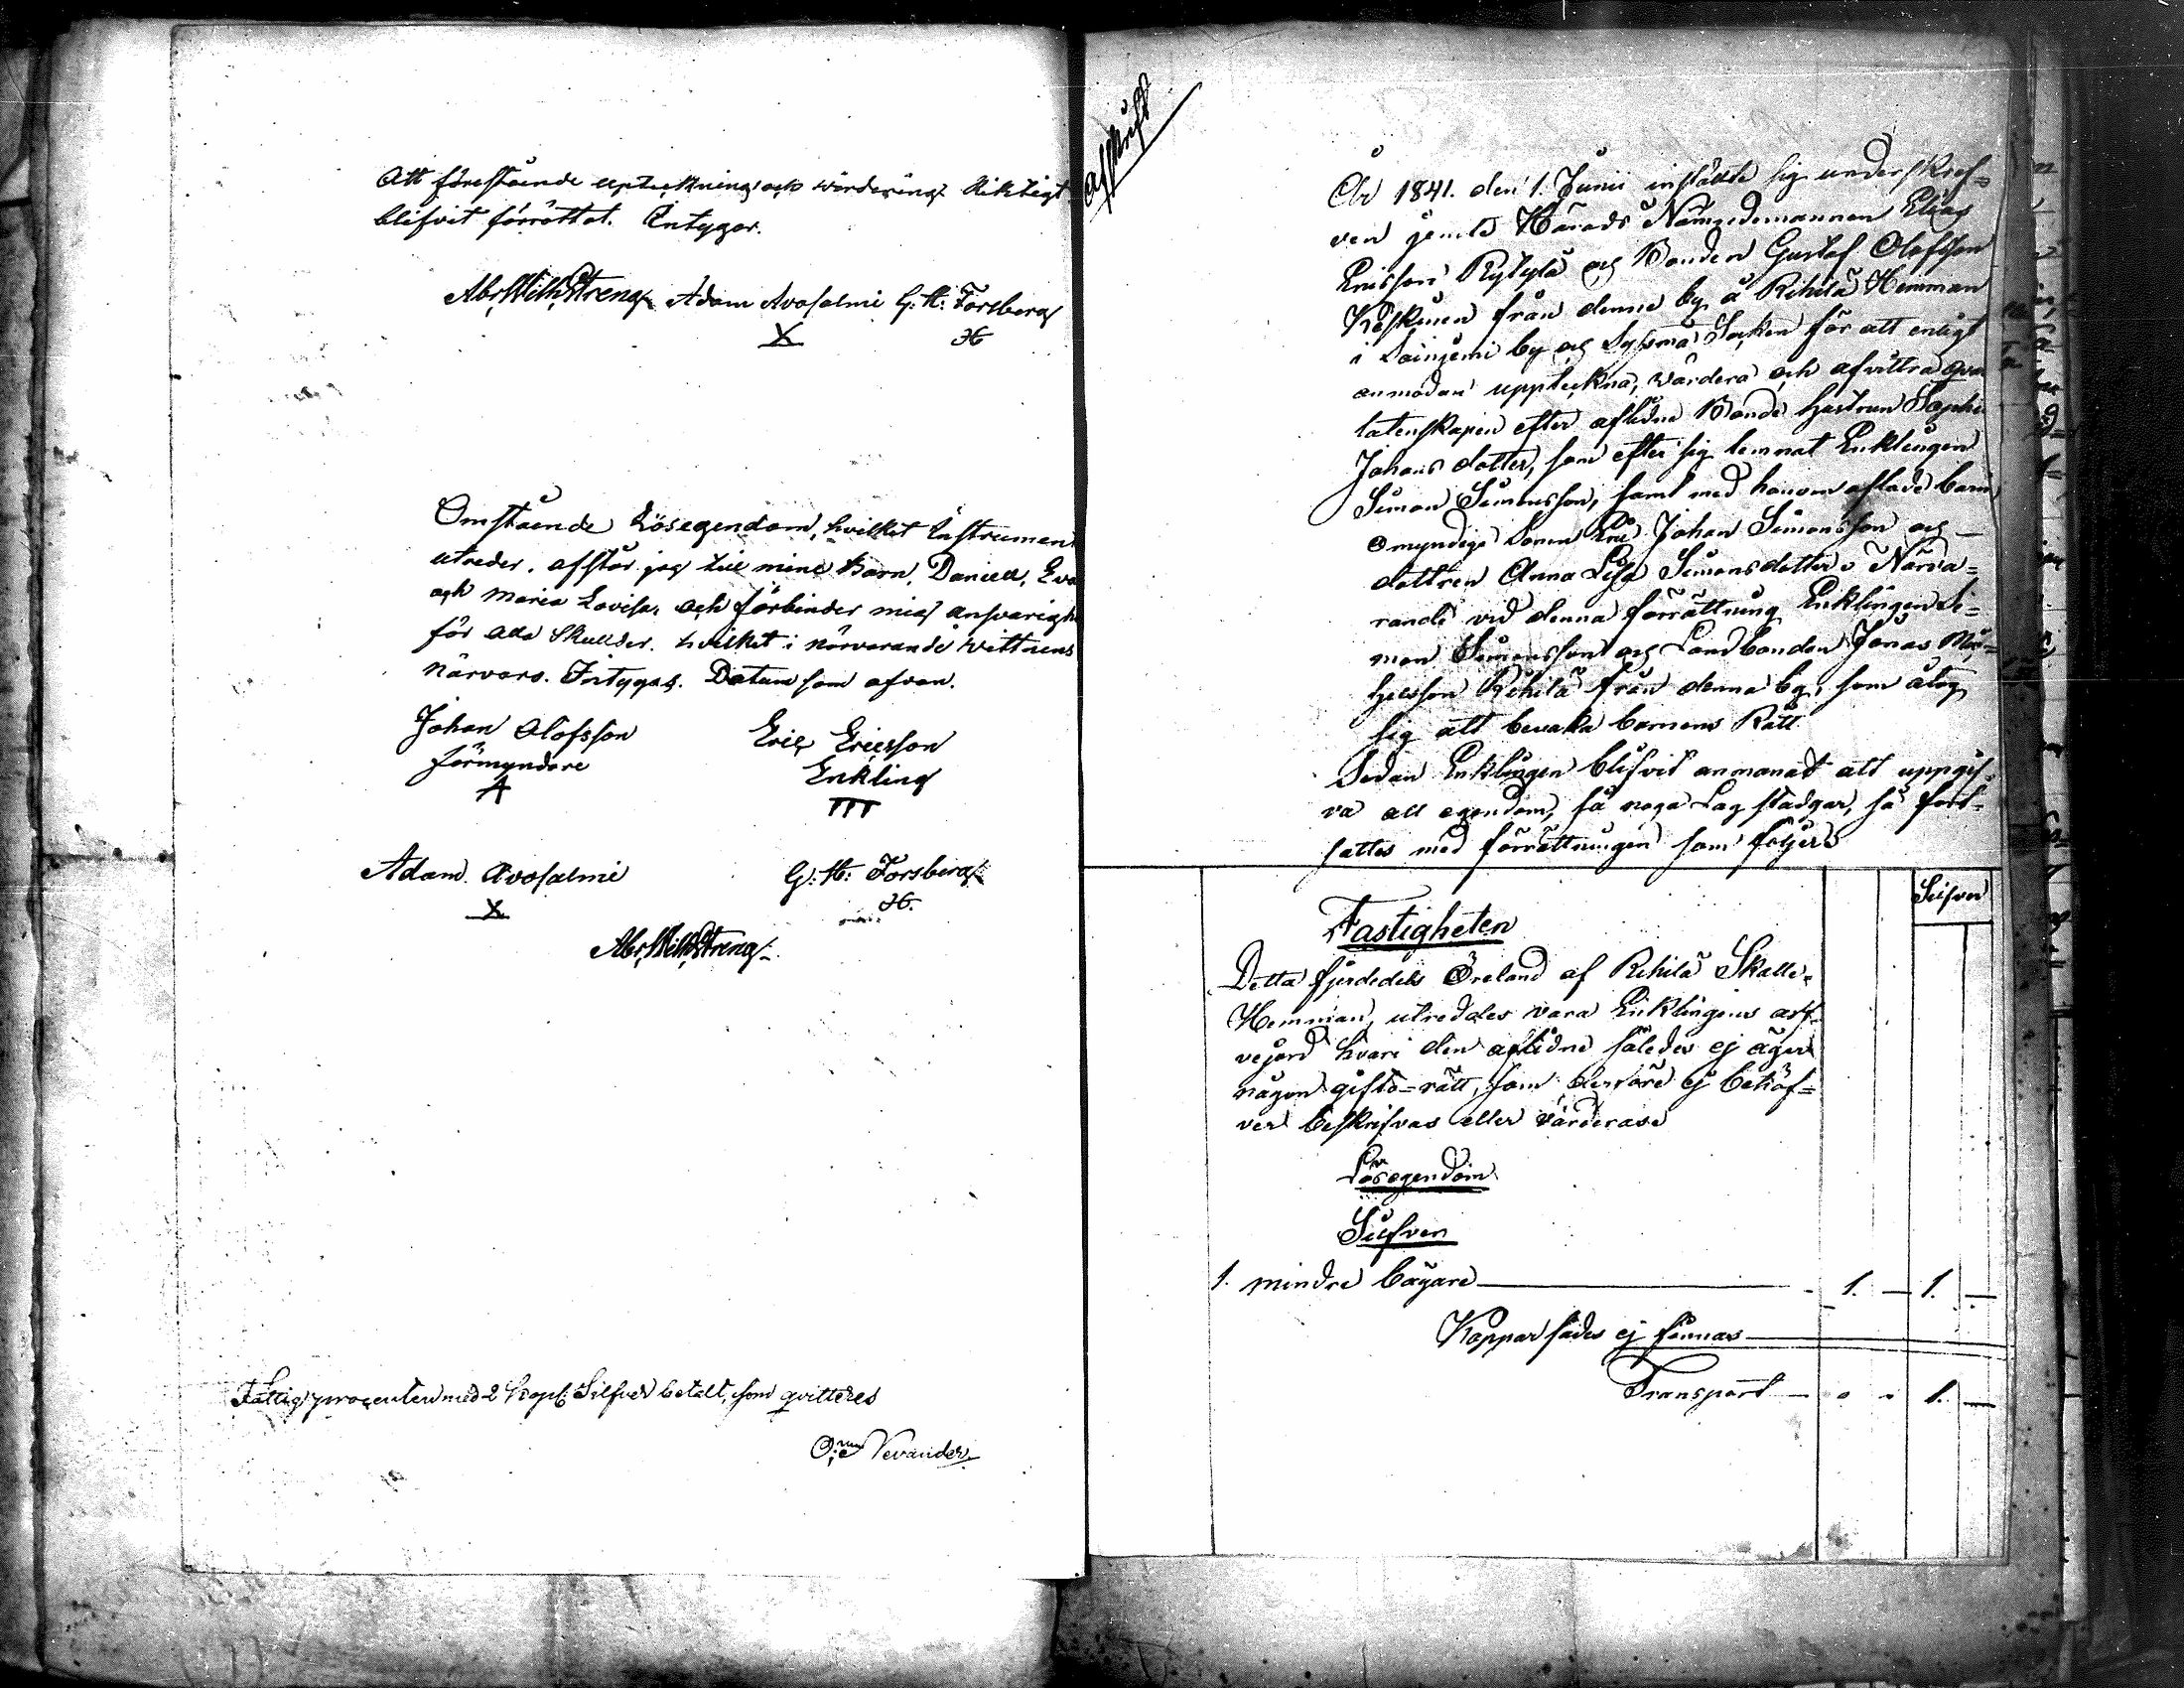 Att förestående uptekning och wärdering Riktigt
blifvit förrättat. Intygar.
Abr. Wilh. Streng Adam Avosalmi G. H. Forsberg
X H
Omstående Lösegendom, hvilket Instrument
utreder, afstår jag till mine Barn, Daniel, Eva
och Maria Lovisa, och förbinder mig ansvarigh
för alla Skulder. hvilket i närvarande wittnens
närvaro. Intygas. Datum som ofvan.
Johan Olofsson Eric Ericsson
förmyndare Enkling
A TTT
Adam Avosalmi G. H. Forsberg
X H.
Abr. Wilh. Streng
Fattigprocenten med 2 kop. Silfver betalt, som qvitteres
Nevander
Afskrift
År 1841. den 1. Junii inställte sig underskref=
ven jemte Härads Nämndemannen Elias
Ericsson Rytylä och Bonden Gustaf Olofsson
Keskinen från denne by å Rihilä Hemman
i by och Sysmä Socken för att enligt
anmodan uppteckna, värdera och afvittra qvar
latenskapen efter aflidne Bonde hustrun Sophia
Johans dotter, som efter sig lemnat Enklingen
Simon Simonsson, samt med honom aflade barn
omyndige Sonen Johan Simonsson och
dottren Anna Lisa Simonsdotter. Närva=
rande vid denna förrättning Enklingen Si=
mon Simonsson och Landbonden Jonas
Rihilä från denna by, som åtog
sig att bevaka barnens Rätt
Sedan Enklingen blifvit anmanat att uppgif=
va all egendom, så noga Lag stadgar, så fort=
sattes med förrättningen som följer
Silfver
Fastigheten
Detta fjerdedels Öreland af Rihilä Skatte=
Hemman, utreddes vara Enklingens arf=
vejord hvari den aflidne således ej äger
någon gifto=rätt, som derföre ej behöf=
ver beskrifvas eller värderas
Lösegendom
Silfver
1. mindre bägare 1. 1.
Koppar sades ej finnas
Transport 1.